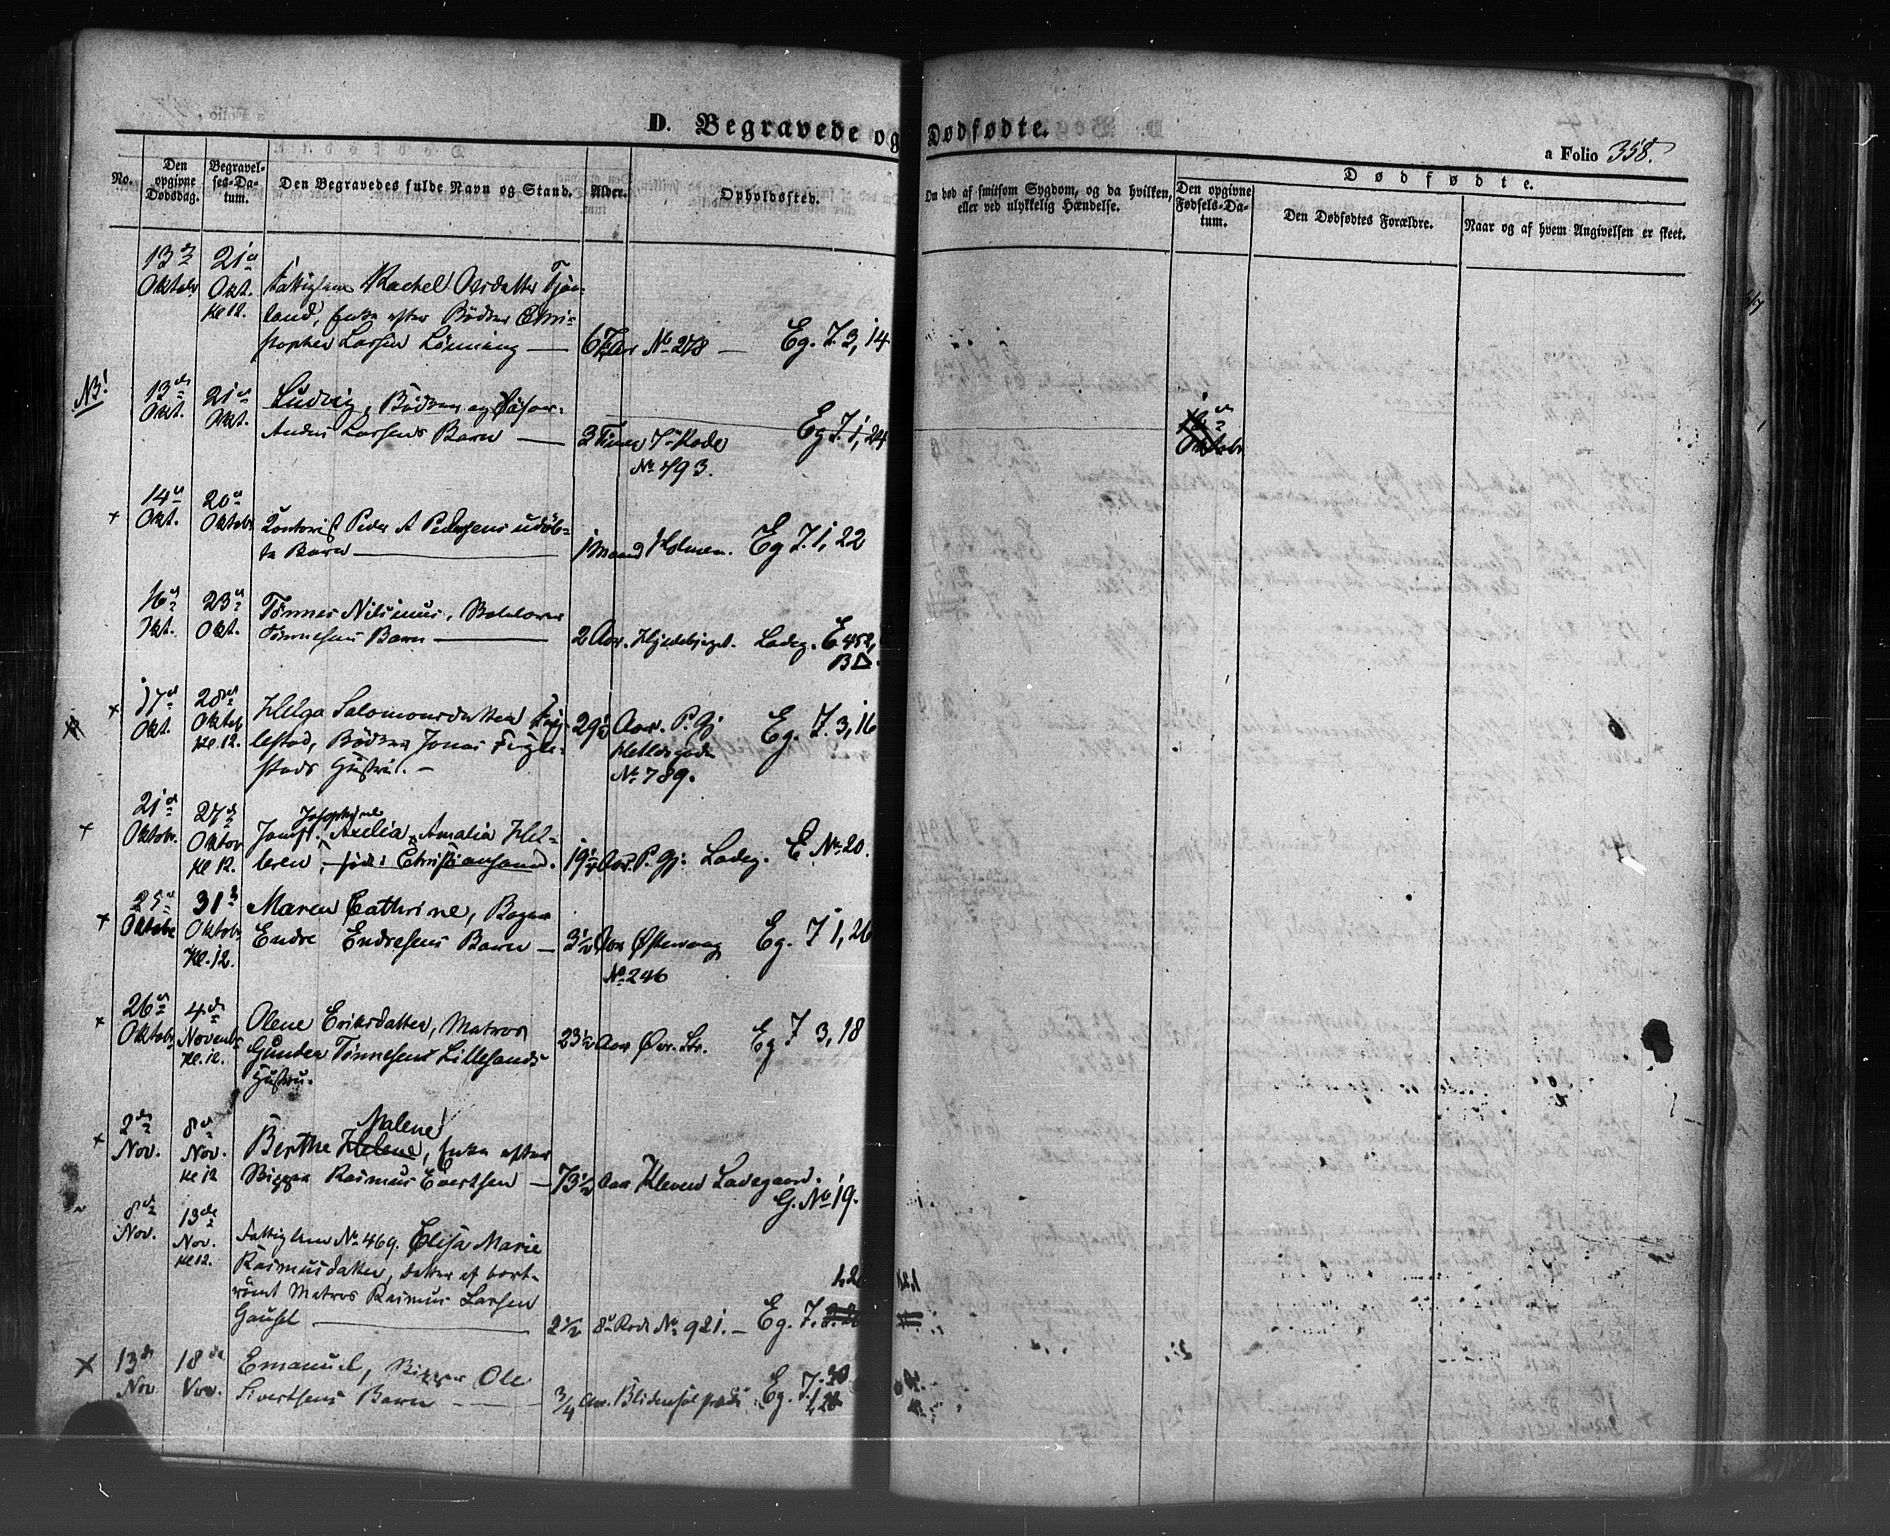 D. Begravede og Dødfødte.
a Folio 358.
No.
Den opgivne Dødsdag.
Begravel-ses-Da-tum.
Den Begravedes fulde Navn og Stand.
Alder.
Opholdssted.
Om død af smitsom Sygdom, og da hvilken,
eller ved ulykkelig Hændelse.
Dødfødte.
Den opgivne Fødsels-Da-tum.
Den Dødfødtes Forældre.
Naar og af hvem Angivelsen er skeet.
13de Oktobr 21de Okt. Kl 12.
Rachel
land, Enke efter Bødker Chri-
stopher Larsen Lönning — Aar No 278 — Eg. J. 3, 14
NB!
13de Okt. 21de Okt.
Ludvig, Bødker og
Larsens Barn — 3 Timer 7de Rode Eg J. 1, 24
No 793.
14de Okt. 20de Oktobr
Kontorist Peder A Pedersens udöb-
te Barn — 1 Maaned Holmen. Eg J. 1, 22
16de Okt. 23de Okt.
Tønnes
Tønnesens Barn — 2 Aar. Ladeg. E 452,
B△.
17de Okt. 28de Oktob Kl. 12.
Helga Salomonsdatter Fug-
lestad, Bødker Jonas Fugle-
stads Hustru. — 29 Aar. P. Gj Eg. J. 3, 16
No 789.
21de Oktobr. 27de Oktor Kl 12.
Josephine
Jomfr. Axelia Amalia Hel-
leren, født i Christiansand. 19 Aar P. Gj. Ladeg. E. No 20.
25de Oktobr 31te Oktobr Kl. 12.
Maren Cathrine,
Endre Endresens Barn — 3 1/2 Aar Østervaag Eg. J 1, 26
No 246
26de Oktobr 4de Novembr Kl. 12.
Olene Eriksdatter, Matros
Gunder Tønnesens Lillesands
Hustru. 23 1/2 Aar Øvr. Str. Eg J 3, 18
2den Nov. 8de Nov. Kl 12
Malene
Berthe Helene, Enke efter
Rasmus Evertsen — 73 1/2 Aar Kleven Ladegaard.
G. No 19.
8de Nov. 13de Nov. Kl 12.
Fattiglem No 469. Elisa Marie
Rasmusdatter, datter af bort-
römt Matros Rasmus Larsen
Gausel — 2 1/2 8de Rode No 921. — Eg. J.
13de Nov 18de Nov.
Emanuel, Ole
Sivertsens Barn — 3/4 Aar. Eg. J.
Oktobr